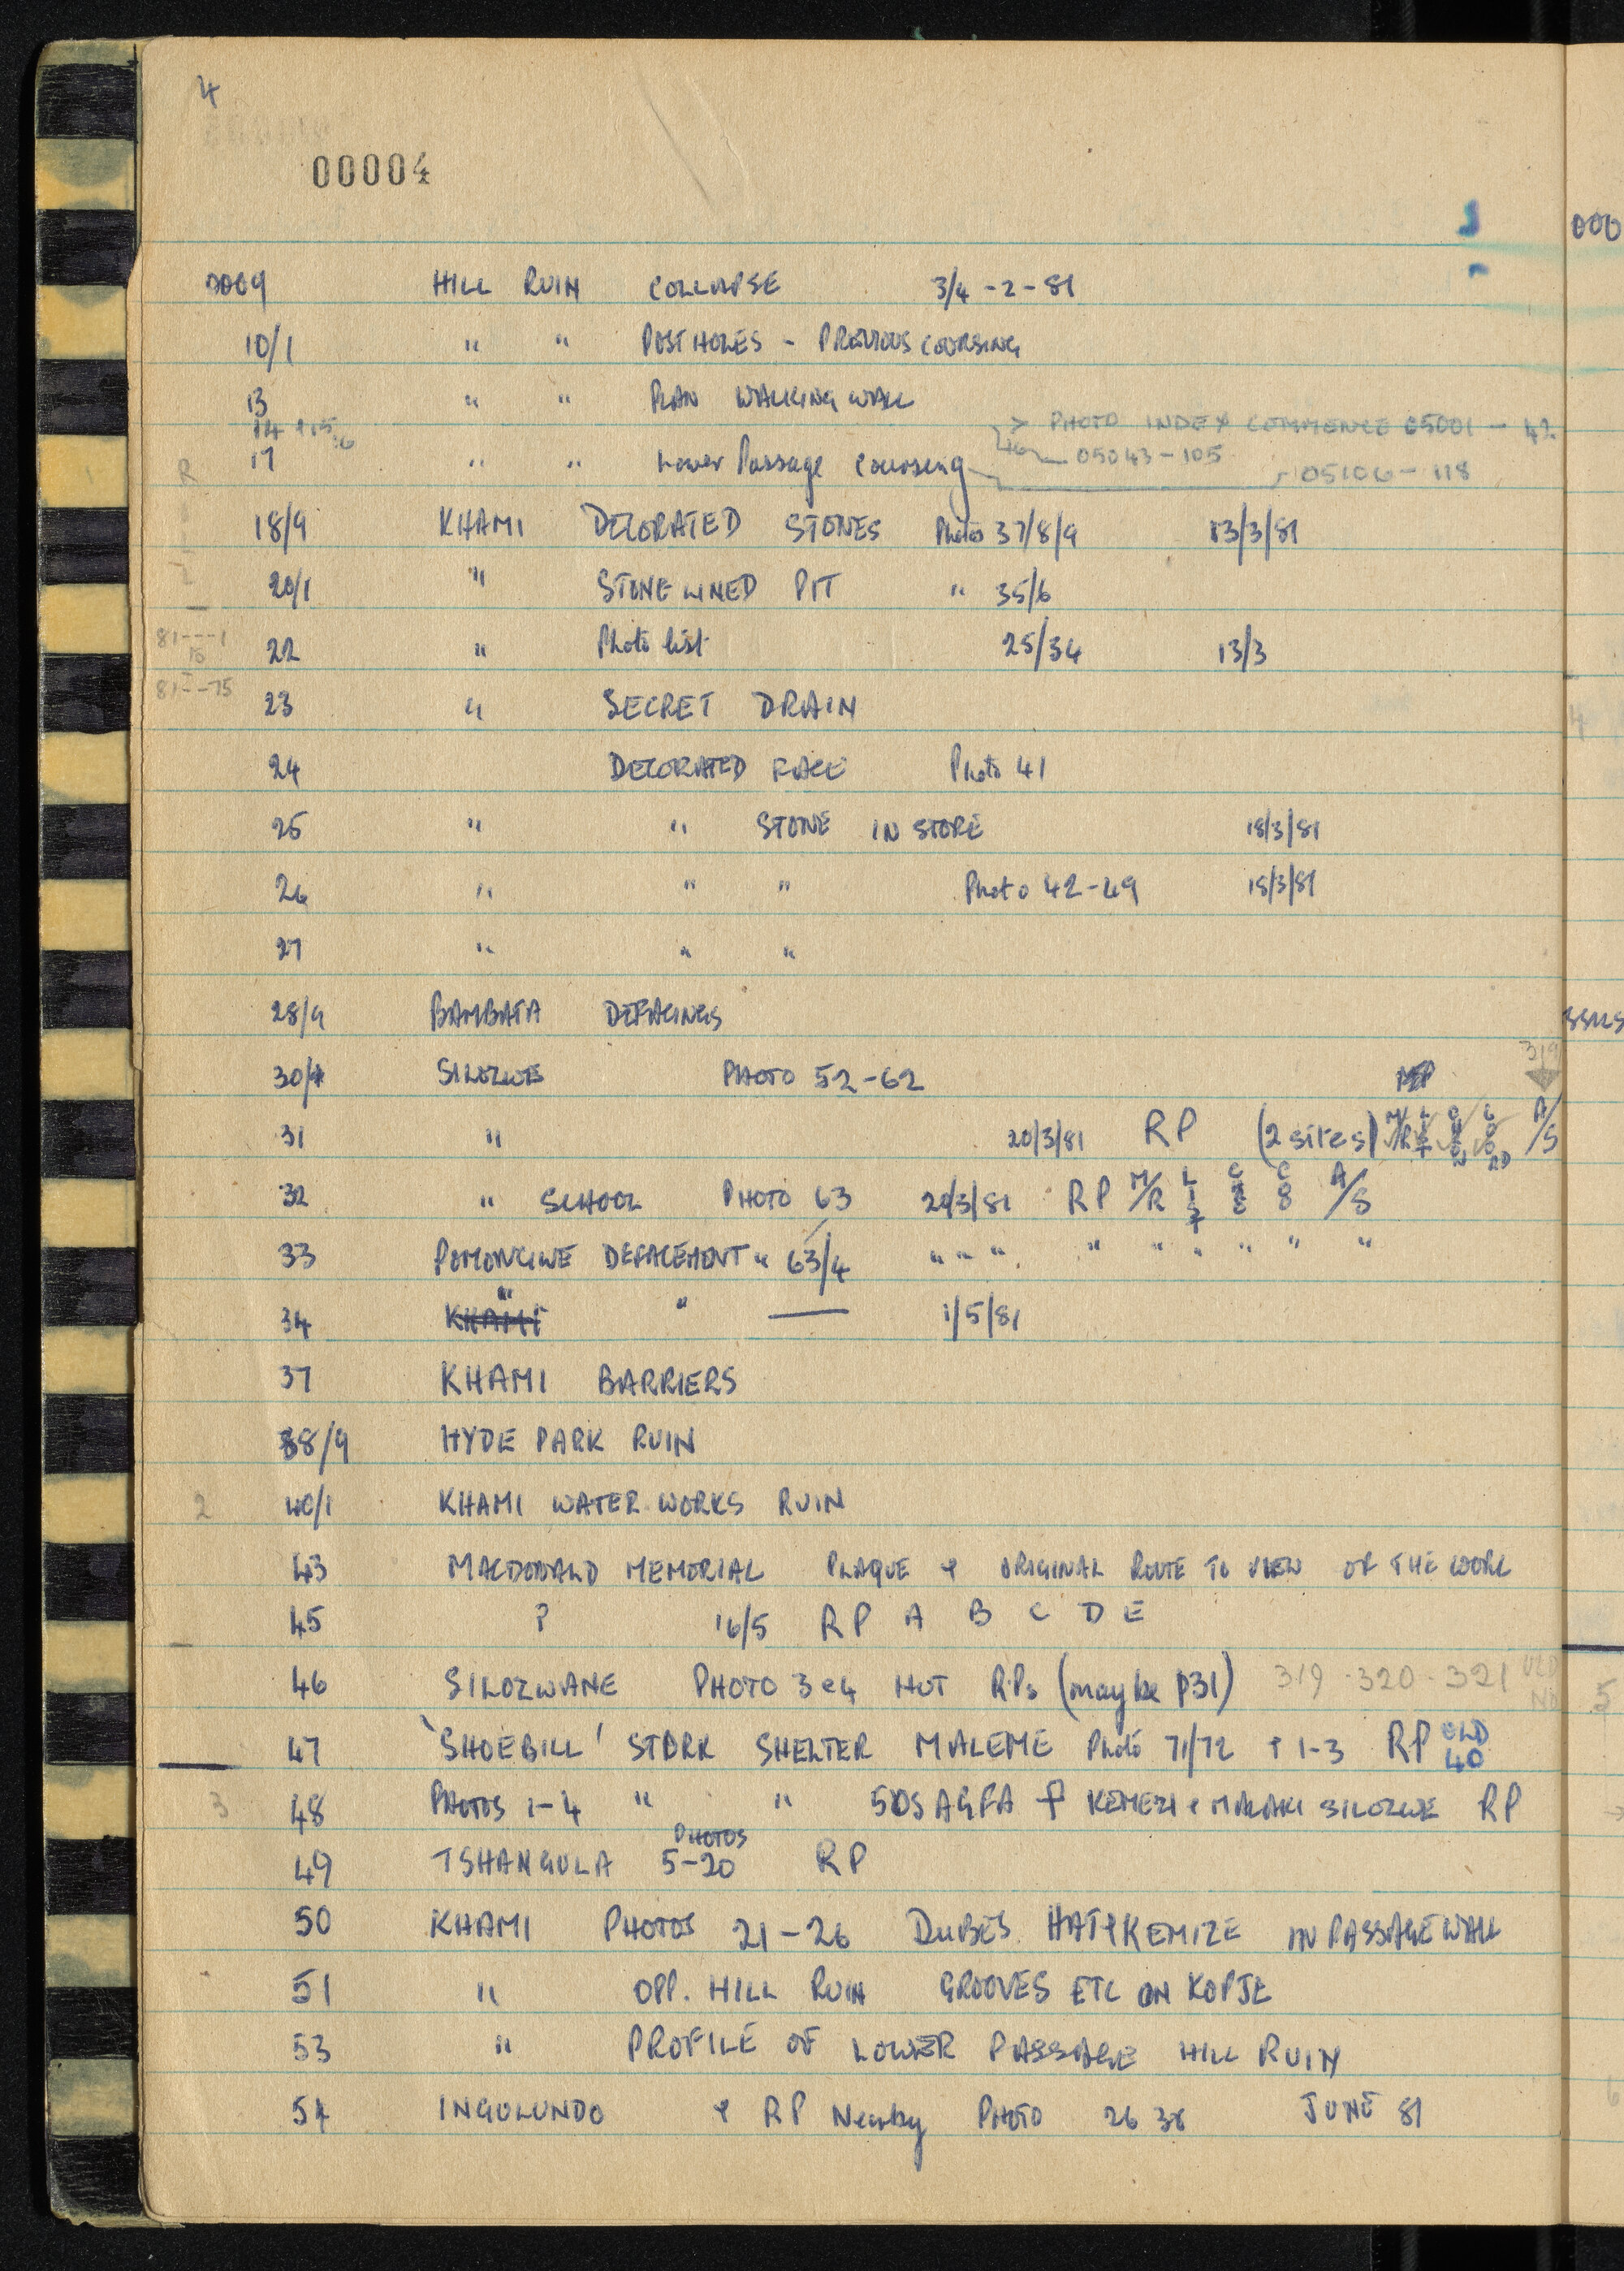 4
00004
0009 HILL RUIN COLLAPSE 3/4 - 2 - 81
10/1 " " POST HOLES - PREVIOUS COURSING
13 " " PLAN WALKING WALL
14 + 15 16 > PHOTO INDEX COMMENCE 05001 - 42
R 17 " " Lower Passage Coursing 16 05043-105 05106-118
18/9 KHAMI DECORATED STONES Photos 37/8/9 13/3/81
20/1 " STONE LINED PIT " 35/6
22 " Photo list 25/34 13/3
23 " SECRET DRAIN
24 DECORATED FACE Photo 41
25 " " STONE IN STORE 18/3/81
26 " " " Photo 42-49 18/3/81
27 " " "
28/9 BAMBATA DEFACINGS
30/1 SILOZWE PHOTO 52-62
31 " 20/3/81 RP (2 sites) A/S
32 " SCHOOL PHOTO 63 20/3/81 RP M/R A/S
33 POMONGWE DEFACEMENT " 63/4 " " " " " " " " "
34 KHAMI " " — 1/5/81
37 KHAMI BARRIERS
38/9 HYDE PARK RUIN
2 40/1 KHAMI WATER WORKS RUIN
43 MACDONALD MEMORIAL PLAQUE & ORIGINAL ROUTE TO VIEW OF THE WORL
45 ? 16/5 RP A B C D E
46 SILOZWANE PHOTO 3 & 4 HUT R.Ps (may be p31) 319 - 320 - 321
47 'SHOEBILL' STORK SHELTER MALEME Photo 71/72 + 1-3 RP OLD 40
3 48 PHOTOS 1-4 " " 50S AGFA + KEMEZI & MALAKI SILOZWE RP
49 TSHANGULA PHOTOS 5-20 RP
50 KHAMI PHOTOS 21-26 DUBES HAT & KEMIZE IN PASSAGE WALL
51 " OPP. HILL RUIN GROOVES ETC ON KOPJE
53 " PROFILE OF LOWER PASSAGE HILL RUIN
54 INGULUNDO & RP Nearby PHOTO 26 38 JUNE 81